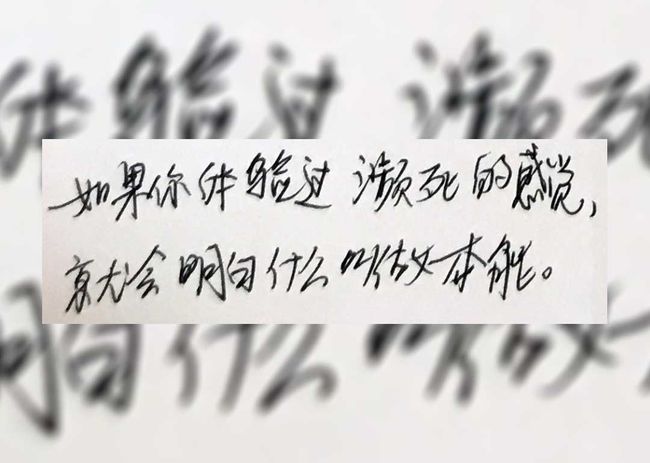 如果你体验过 濒死的感觉，
就会 明白什么叫做本能。